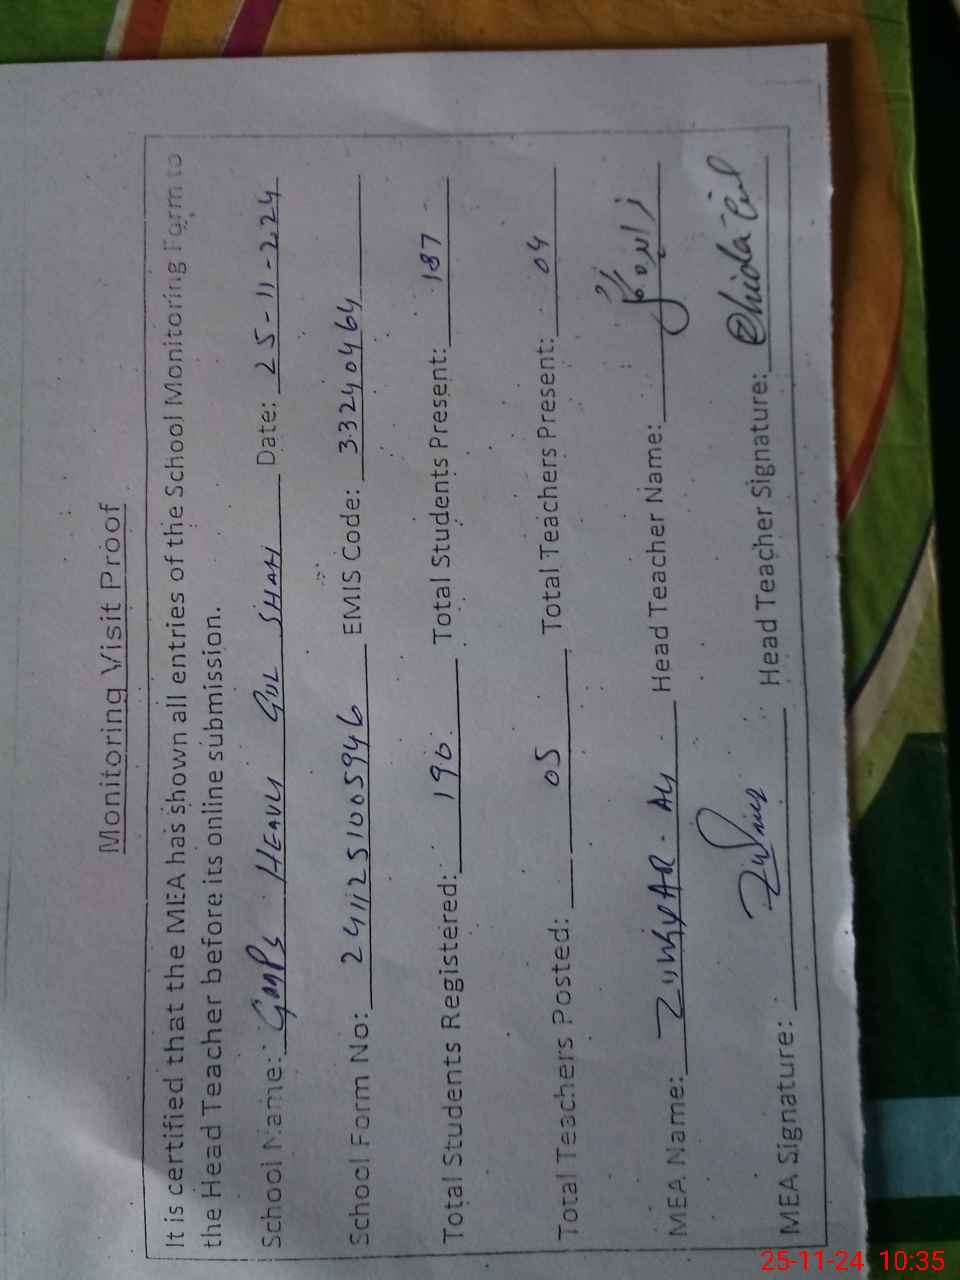 Monitoring Visit Proof
It is certified that the MEA has shown all entries of the School Monitoring Form to
the Head Teacher before its online submission.
School Name: GMPS HEAVLY GUL SHAH Date: 25-11-2024
School Form No: 2411251005946 EMIS Code: 33240464
Total Students Registered: 196 Total Students Present: 187
Total Teachers Posted: 05 Total Teachers Present: 04
MEA Name: Head Teacher Name:
MEA Signature: Head Teacher Signature:
25-11-24 10:35